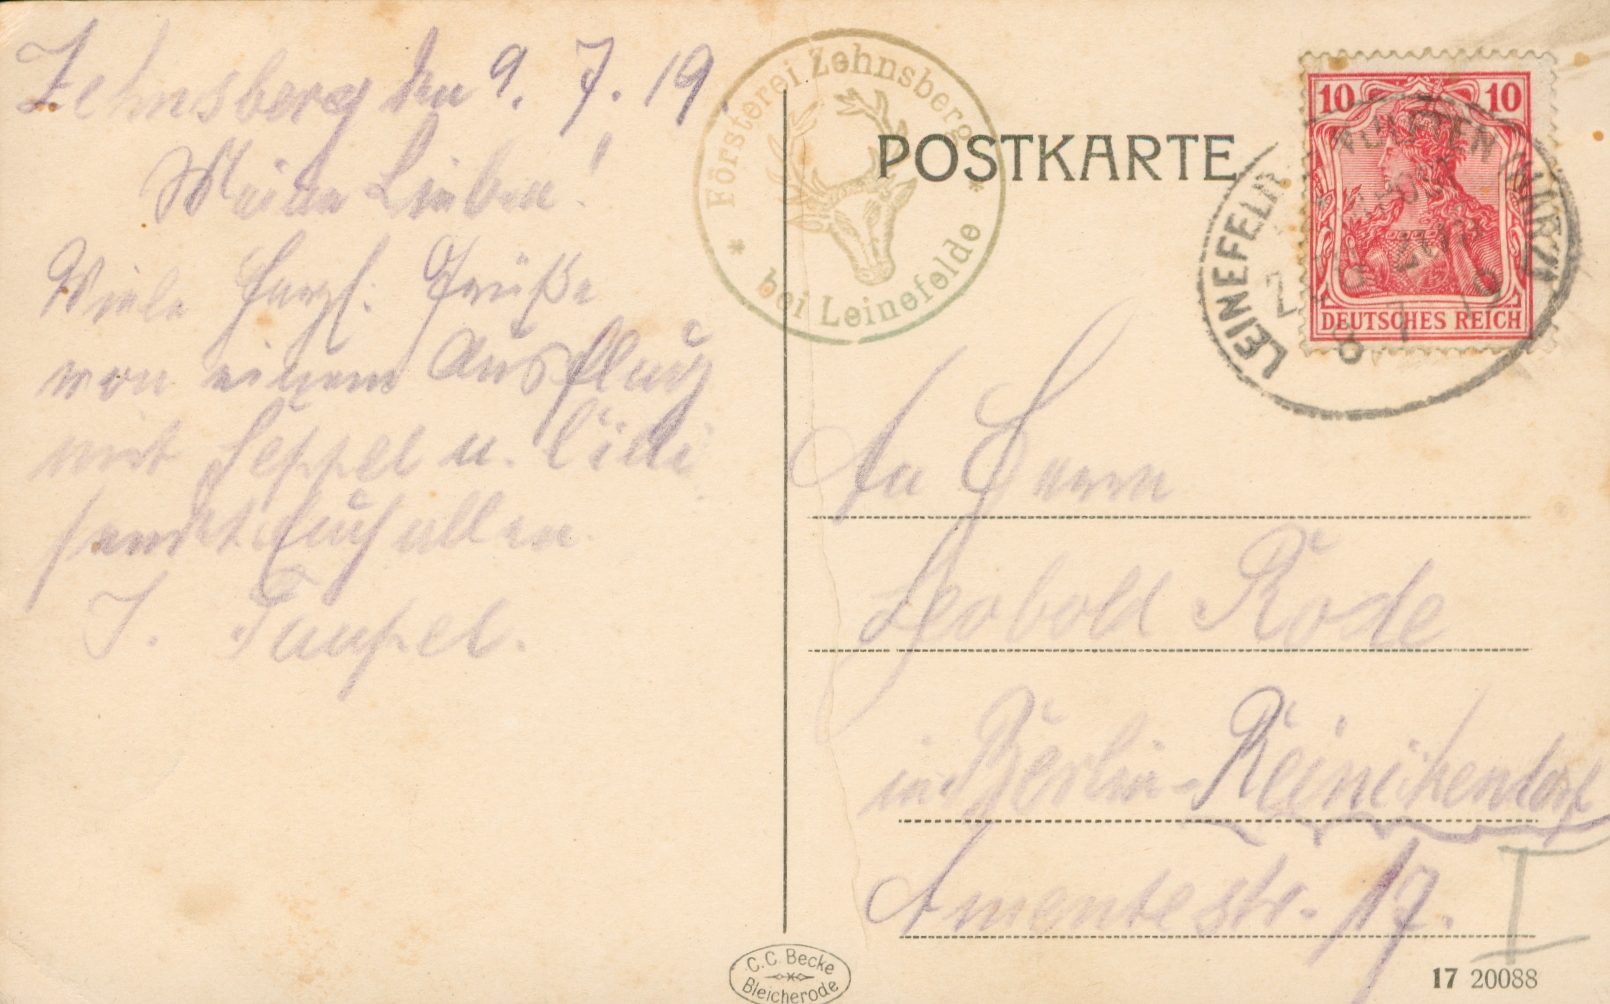 Zehnsberg den 9. 7. 19.
Meine Lieben!
Viele herzl. Grüße
von einem Ausflug
mit Seppel u. Cilli
sendet Euch allen
J.
Försterei Zehnsberg
* bei Leinefelde *
POSTKARTE
10 10
DEUTSCHES REICH
LEINEFELD
8 7 19
An Herrn
Leobold Rode
in Berlin-Reinickendorf
Amentestr. 17.
I
C. C. Becke
Bleicherode
17 20088